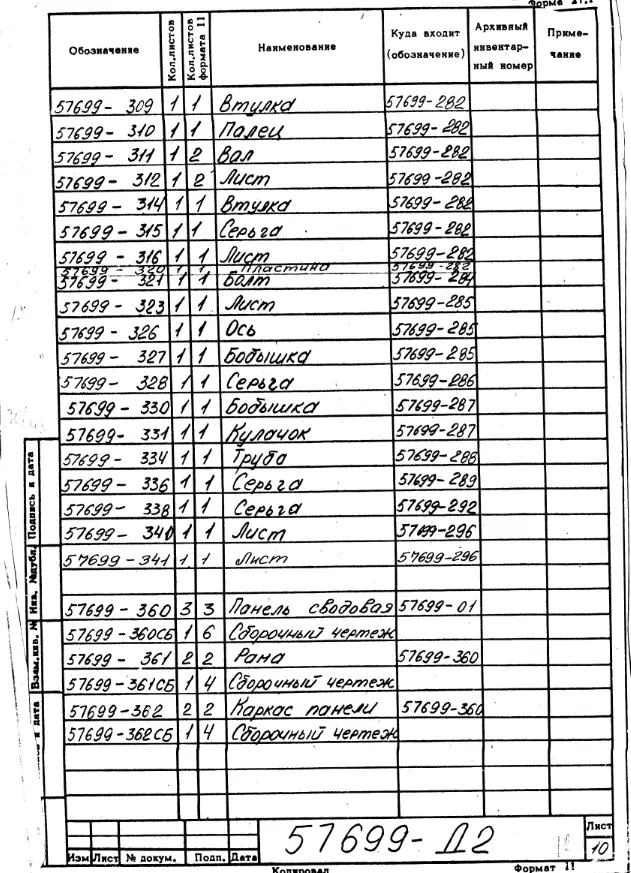 Форма 2Г.1
Обозначение Кол.листов Кол.листов формата 11 Наименование Куда входит (обозначение) Архивный инвентар- ный номер Приме- чание
57699- 309 1 1 Втулка 57699-282
57699- 310 1 1 Палец 57699-282
57699- 311 1 2 Вал 57699-282
57699- 312 1 2 Лист 57699-282
57699- 314 1 1 Втулка 57699-282
57699- 315 1 1 Серьга 57699-282
57699 - 316 1 1 Лист 57699-282
57699 - 320 1 1 Пластина 57699-282
57699- 321 1 1 Болт 57699-284
57699- 323 1 1 Лист 57699-285
57699 - 326 1 1 Ось 57699-285
57699 - 327 1 1 Бобышка 57699-285
57699- 328 1 1 Серьга 57699-286
57699 - 330 1 1 Бобышка 57699-287
57699- 331 1 1 Кулачок 57699-287
57699- 334 1 1 Труба 57699-286
57699- 336 1 1 Серьга 57699-289
57699- 338 1 1 Серьга 57699-292
57699- 340 1 1 Лист 57699-296
57699-341 1 1 Лист 57699-296
57699 - 360 3 3 Панель сводовая 57699-01
57699 -360СБ 1 6 Сборочный чертеж
57699 - 361 2 2 Рама 57699-360
57699-361СБ 1 4 Сборочный чертеж
57699-362 2 2 Каркас панели 57699-360
57699-362СБ 1 4 Сборочный чертеж
Подпись и дата
Инв. №дубл.
Взам.инв. №
и дата
57699-Д2
12
Лист
10
Изм Лист № докум. Подп. Дата
Копировал Формат 11